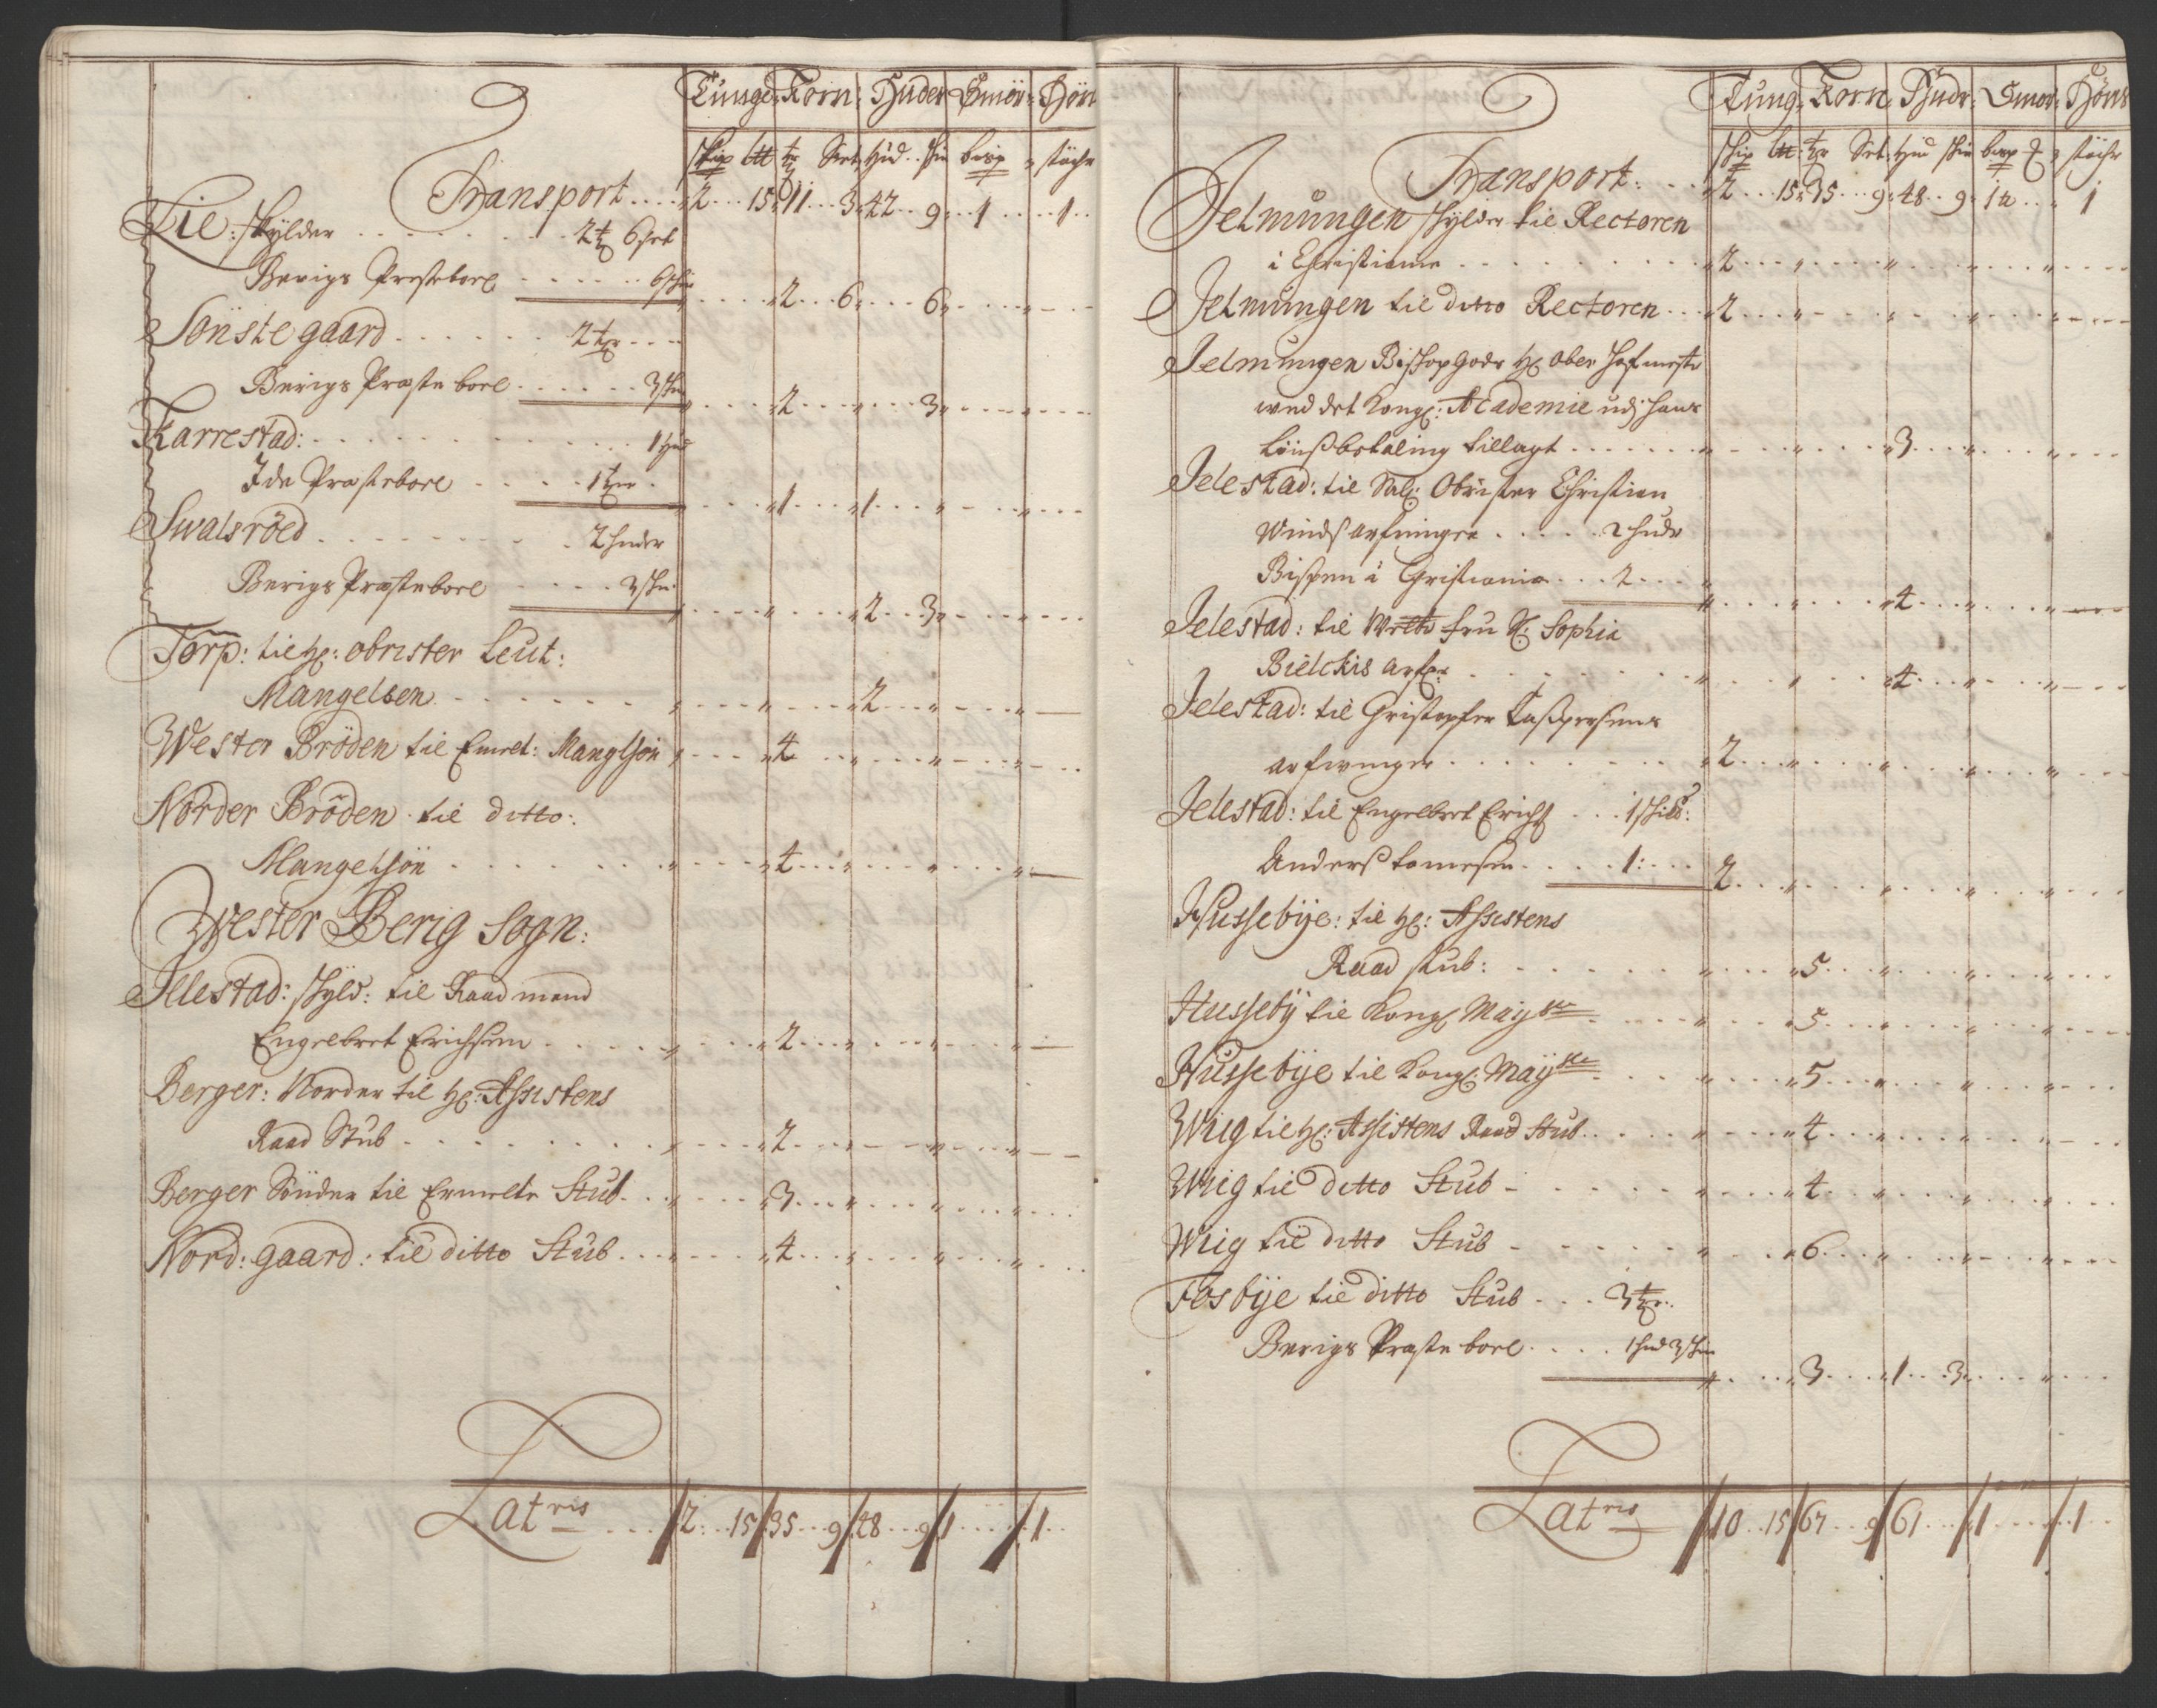 Tunge: Korn: Huder Smör: Hön
skip ltt tr Set, Hud.. skin bisp stöchr
Transport .... 2 ... 15 11 ... 3 42 .. 9 .. 1 .... 1 ..
Lie: skylder ........ 2 tr 6 set
Berigs Prestebord ..... 6 skin .... 2 ... 6 .... 6
Sönste gaard ....... 2 tr ...
Berigs Præste bord ...... 3 skin .... 2 ...... 3
Karrestad: ........... 1 Hud
Ide Præstebord .... 1 tr .... 1 .... 1
Swalsröed ......... 2 huder
Berigs Præstebord .... 3 skin ....... 2 .. 3
Torp: til H: obrister Leut:
Mangelsen ........ 2
Wester Bröden til Emelt: Manglsön ... 4
Norder Bröden til ditto:
Mangelsön ....... 4
Wester Berig Sogn:
Jllestad: skyld: til Raadmand
Engelbret Erichsen ..... 2
Berger: Norder til H: Assistens
Raad Stub ......... 2
Berger Sönder til Ermelte Stub .... 3
Nord: gaard: til ditto Stub .... 4
Lat ris ... 2 ... 15 35 ... 9 48 ... 9 1 .... 1 ..
Tung: Korn: Hudr: Smör: Höns
skip ltt: tr Set: Hud skin bisp stöchr
Transport: ... 2 ... 15 35 ... 9 48 .. 9 1 .. 1
Jelmungen skylder til Rectoren
i Christiania ........ 2
Jelmungen til ditto Rectoren ... 2
Jelmungen Bishopgods H: Ober Hofmester
wed det Kongl: Academie udj hans
Lönsbetaling tillagt ....... 3
Jelestad: til Sal: Obrister Christian
Winds arfuinger ..... 2 hudr
Bispen i Christiania ... 2 ... 4
Jelestad: til fru H: Sophia
Bielckis arf: ........ 4
Jelestad: til Christopfer Casspersens
arfuinger ........ 2
Jelestad: til Engelbret Erichs ... 1 skild:
Anders Tomesen .... 1: ... 2
Hussebÿe: til H: Assistens
Raad stub: ...... 5
Hussebÿ til Kongl Maÿ ste .... 5
Hussebÿe til Kongl: Maÿ ste .... 5
Wiig til H: Assistens Raad Stub .... 4
Wiig til ditto Stub ...... 4
Wiig til ditto Stub ...... 6
Fosbÿe til ditto Stub ... 3 tr.
Berigs Præste bord .... 1 hud 3 skin .... 3 ... 1 ... 3
Lat ris 10 .. 15 67 ... 9 61 ... 1 .... 1 ..